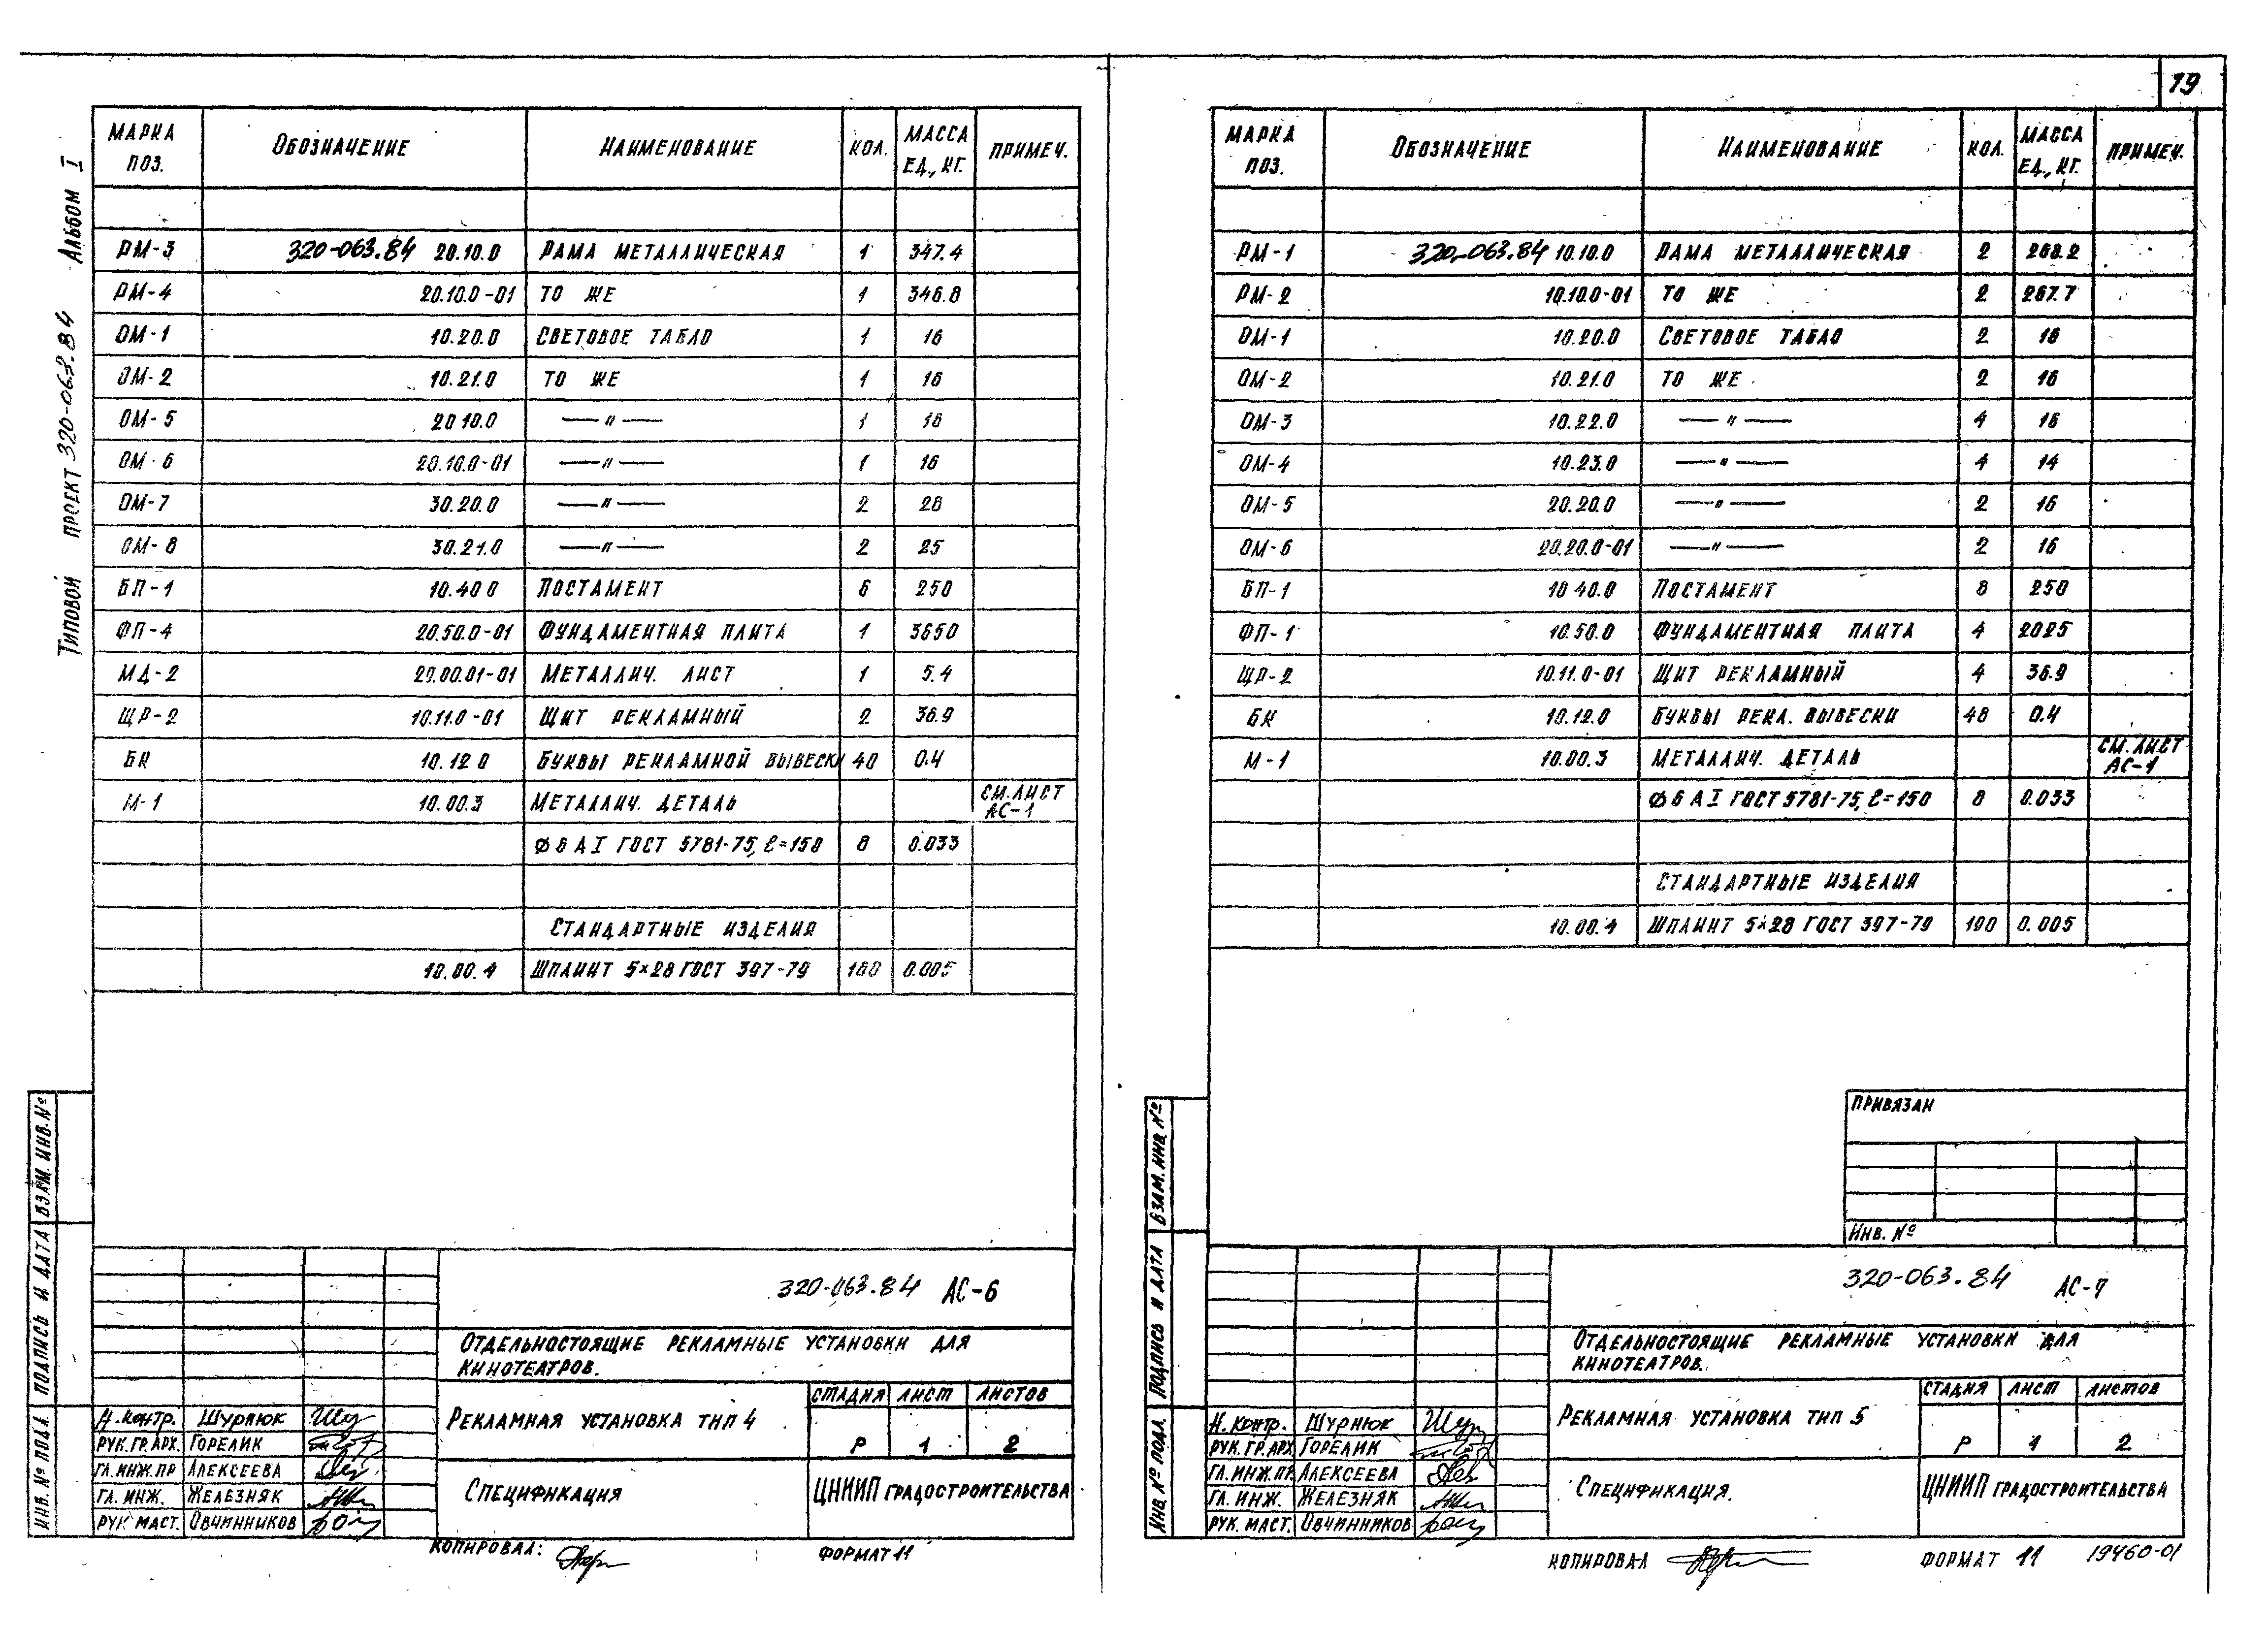 19
Типовой проект 320-063.84 Альбом I
МАРКА ПОЗ. ОБОЗНАЧЕНИЕ НАИМЕНОВАНИЕ КОЛ. МАССА ЕД., КГ. ПРИМЕЧ.
РМ-3 320-063.84 20.10.0 РАМА МЕТАЛЛИЧЕСКАЯ 1 347.4
РМ-4 20.10.0-01 ТО ЖЕ 1 346.8
ОМ-1 10.20.0 СВЕТОВОЕ ТАБЛО 1 16
ОМ-2 10.21.0 ТО ЖЕ 1 16
ОМ-5 20 10.0 —"— 1 16
ОМ-6 20.10.0-01 —"— 1 16
ОМ-7 30.20.0 —"— 2 28
ОМ-8 30.21.0 —"— 2 25
БП-1 10.40 0 ПОСТАМЕНТ 6 250
ФП-4 20.50.0-01 ФУНДАМЕНТНАЯ ПЛИТА 1 3650
МД-2 20.00.01-01 МЕТАЛЛИЧ. ЛИСТ 1 5.4
ЩР-2 10.11.0-01 ЩИТ РЕКЛАМНЫЙ 2 36.9
БК 10.12 0 БУКВЫ РЕКЛАМНОЙ ВЫВЕСКИ 40 0.4
М-1 10.00.3 МЕТАЛЛИЧ. ДЕТАЛЬ СМ. ЛИСТ АС-1
Ø 6 А I ГОСТ 5781-75, ℓ=150 8 0.033
СТАНДАРТНЫЕ ИЗДЕЛИЯ
10.00.4 ШПЛИНТ 5×28 ГОСТ 397-79 0.005
ВЗАМ. ИНВ. №
ПОДПИСЬ И ДАТА
ИНВ. № ПОДЛ.
320-063.84 АС-6
ОТДЕЛЬНОСТОЯЩИЕ РЕКЛАМНЫЕ УСТАНОВКИ ДЛЯ
КИНОТЕАТРОВ.
СТАДИЯ ЛИСТ ЛИСТОВ
РЕКЛАМНАЯ УСТАНОВКА ТИП 4
Р 1 2
Н. контр. Шурнюк
РУК. ГР. АРХ. ГОРЕЛИК
ГЛ. ИНЖ. ПР АЛЕКСЕЕВА
ГЛ. ИНЖ. ЖЕЛЕЗНЯК
РУК МАСТ. ОВЧИННИКОВ
СПЕЦИФИКАЦИЯ
ЦНИИП ГРАДОСТРОИТЕЛЬСТВА
КОПИРОВАЛ:
ФОРМАТ 11
МАРКА ПОЗ. ОБОЗНАЧЕНИЕ НАИМЕНОВАНИЕ КОЛ. МАССА ЕД., КГ. ПРИМЕЧ.
РМ-1 320-063.84 10.10.0 РАМА МЕТАЛЛИЧЕСКАЯ 2 268.2
РМ-2 10.10.0-01 ТО ЖЕ 2 267.7
ОМ-1 10.20.0 СВЕТОВОЕ ТАБЛО 2 16
ОМ-2 10.21.0 ТО ЖЕ 2 16
ОМ-3 10.22.0 —"— 4 16
ОМ-4 10.23.0 —"— 4 14
ОМ-5 20.20.0 —"— 2 16
ОМ-6 20.20.0-01 —"— 2 16
БП-1 10 40.0 ПОСТАМЕНТ 8 250
ФП-1 10.50.0 ФУНДАМЕНТНАЯ ПЛИТА 4 2025
ЩР-2 10.11.0-01 ЩИТ РЕКЛАМНЫЙ 4 36.9
БК 10.12.0 БУКВЫ РЕКЛ. ВЫВЕСКИ 48 0.4
М-1 10.00.3 МЕТАЛЛИЧ. ДЕТАЛЬ СМ. ЛИСТ АС-1
Ø 6 А I ГОСТ 5781-75, ℓ=150 8 0.033
СТАНДАРТНЫЕ ИЗДЕЛИЯ
10.00.4 ШПЛИНТ 5×28 ГОСТ 397-79 100 0.005
ПРИВЯЗАН
ИНВ. №
ВЗАМ. ИНВ №
ПОДПИСЬ И ДАТА
ИНВ. № ПОДЛ.
320-063.84 АС-7
ОТДЕЛЬНОСТОЯЩИЕ РЕКЛАМНЫЕ УСТАНОВКИ ДЛЯ
КИНОТЕАТРОВ.
СТАДИЯ ЛИСТ ЛИСТОВ
РЕКЛАМНАЯ УСТАНОВКА ТИП 5
Р 1 2
Н. контр. Шурнюк
РУК. ГР. АРХ ГОРЕЛИК
ГЛ. ИНЖ. ПР. АЛЕКСЕЕВА
ГЛ. ИНЖ. ЖЕЛЕЗНЯК
РУК. МАСТ. ОВЧИННИКОВ
СПЕЦИФИКАЦИЯ.
ЦНИИП ГРАДОСТРОИТЕЛЬСТВА
КОПИРОВАЛ
ФОРМАТ 11
19460-01